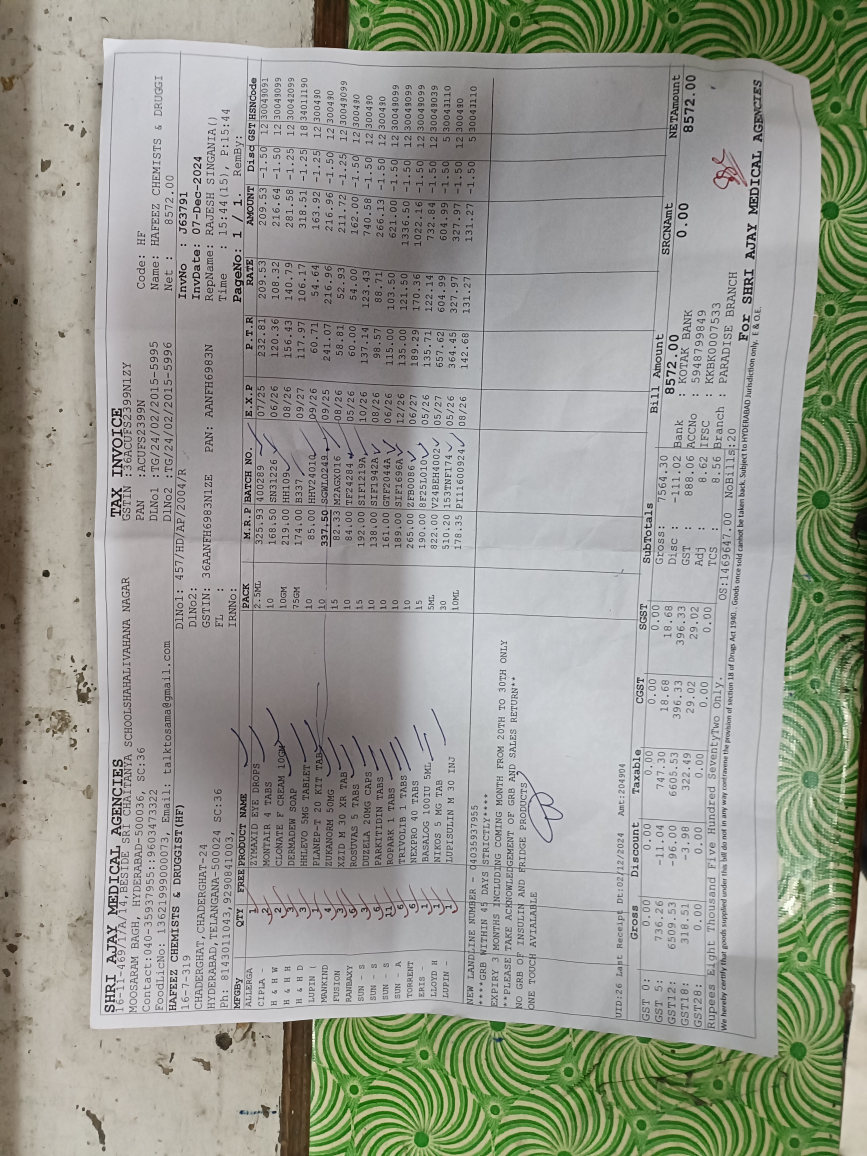 SHRI AJAY MEDICAL AGENCIES
16-11-469/17A/14,BESIDE SRI CHAITANYA SCHOOLSHAHALIVAHANA NAGAR
MOOSARAM BAGH, HYDERABAD-500036, SC:36
Contact:040-35937955::9603473327
FoodLicNo: 13621999000073, Email: talktosama@gmail.com
TAX INVOICE
GSTIN :36ACUFS2399N1ZY
PAN :ACUFS2399N
DLNo1 :TG/24/02/2015-5995
DLNo2 :TG/24/02/2015-5996
Code: HF
Name: HAFEEZ CHEMISTS & DRUGGI
Net : 8572.00
HAFEEZ CHEMISTS & DRUGGIST(HF)
16-7-319
CHADERGHAT,CHADERGHAT-24
HYDERABAD,TELANGANA-500024 SC:36
Ph: 8143011043,9290841003,
DlNo1: 457/HD/AP/2004/R
DlNo2:
GSTIN: 36AANFH6983N1ZE PAN: AANFH6983N
FL :
IRNNo:
InvNo : J63791
InvDate: 07-Dec-2024
RepName: RAJESH SINGANIA()
Time : 15:44(15), P:15:44
PageNo: 1 / 1. RemBy:
MFGBy QTY FREE PRODUCT NAME PACK M.R.P BATCH NO. E.X.P P.T.R RATE AMOUNT Disc GST HSNCode
ALLERGA 1 ZYMAXID EYE DROPS 2.5ML 325.93 400289 07/25 232.81 209.53 209.53 -1.50 12 30049091
CIPLA - 2 MONTAIR 4 TABS 10 168.50 SN31226 06/26 120.36 108.32 216.64 -1.50 12 30049099
H & H W 2 CLONATE F CREAM 10GM 10GM 219.00 HH109 08/26 156.43 140.79 281.58 -1.25 12 30042099
H & H H 3 DERMADEW SOAP 75GM 174.00 B337 09/27 117.97 106.17 318.51 -1.25 18 34011190
H & H D 3 HHLEVO 5MG TABLET 10 85.00 HHY24010 09/26 60.71 54.64 163.92 -1.25 12 300490
LUPIN ( 1 PLANEP-T 20 KIT TAB 10 337.50 SGWL0249 09/25 241.07 216.96 216.96 -1.50 12 300490
MANKIND 4 ZUKANORM 50MG 15 82.33 M2AGX016 08/26 58.81 52.93 211.72 -1.25 12 30049099
FUSION 3 XZID M 30 XR TAB 10 84.00 TF24284 05/26 60.00 54.00 162.00 -1.50 12 300490
RANBAXY 6 ROSUVAS 5 TABS 15 192.00 SIF1219A 10/26 137.14 123.43 740.58 -1.50 12 300490
SUN - S 3 DUZELA 20MG CAPS 10 138.00 SIF1942A 08/26 98.57 88.71 266.13 -1.50 12 300490
SUN - S 6 PARKITIDIN TABS 10 161.00 GTF2044A 06/26 115.00 103.50 621.00 -1.50 12 30049099
SUN - S 11 ROPARK 1 TABS 10 189.00 SIF1696A 12/26 135.00 121.50 1336.50 -1.50 12 30049099
SUN - A 6 TRIVOLIB 1 TABS 10 265.00 ZFB0086 06/27 189.29 170.36 1022.16 -1.50 12 30049099
TORRENT 6 NEXPRO 40 TABS 15 190.00 BF25L010 05/26 135.71 122.14 732.84 -1.50 12 30049039
ERIS - 1 BASALOG 100IU 5ML 5ML 822.00 V24BEH4002 05/27 657.62 604.99 604.99 -1.50 5 30043110
LLOYD H 1 NIKOS 5 MG TAB 30 510.20 153TNF174 05/26 364.45 327.97 327.97 -1.50 12 300490
LUPIN - 1 LUPISULIN M 30 INJ 10ML 178.35 PI11600924 08/26 142.68 131.27 131.27 -1.50 5 30043110
NEW LANDLINE NUMBER - 04035937955
****GRB WITHIN 45 DAYS STRICTLY****
EXPIRY 3 MONTHS INCLUDING COMING MONTH FROM 20TH TO 30TH ONLY
**PLEASE TAKE ACKNOWLEDGEMENT OF GRB AND SALES RETURN**
NO GRB OF INSULIN AND FRIDGE PRODUCTS
ONE TOUCH AVIALABLE
UID:26 Last Receipt Dt:02/12/2024 Amt:204904
Gross Discount Taxable CGST SGST SubTotals
GST 0: 0.00 0.00 0.00 0.00 0.00 Gross: 7564.30
GST 5: 736.26 -11.04 747.30 18.68 18.68 Disc : -111.02
GST12: 6509.53 -96.00 6605.53 396.33 396.33 GST : 888.06
GST18: 318.51 -3.98 322.49 29.02 29.02 Adj : 8.62
GST28: 0.00 0.00 0.00 0.00 0.00 TCS : 8.56
Bill Amount SRCNAmt NETAmount
8572.00 0.00 8572.00
Bank : KOTAK BANK
ACCNo : 5948799849
IFSC : KKBK0007533
Branch : PARADISE BRANCH
Rupees Eight Thousand Five Hundred SeventyTwo Only. OS:1469647.00 NoBills:20
For SHRI AJAY MEDICAL AGENCIES
We hereby certify that goods supplied under this bill do not in any way contravene the provision of section 18 of Drugs Act 1940. Goods once sold cannot be taken back. Subject to HYDERABAD Jurisdiction only. E & O.E.